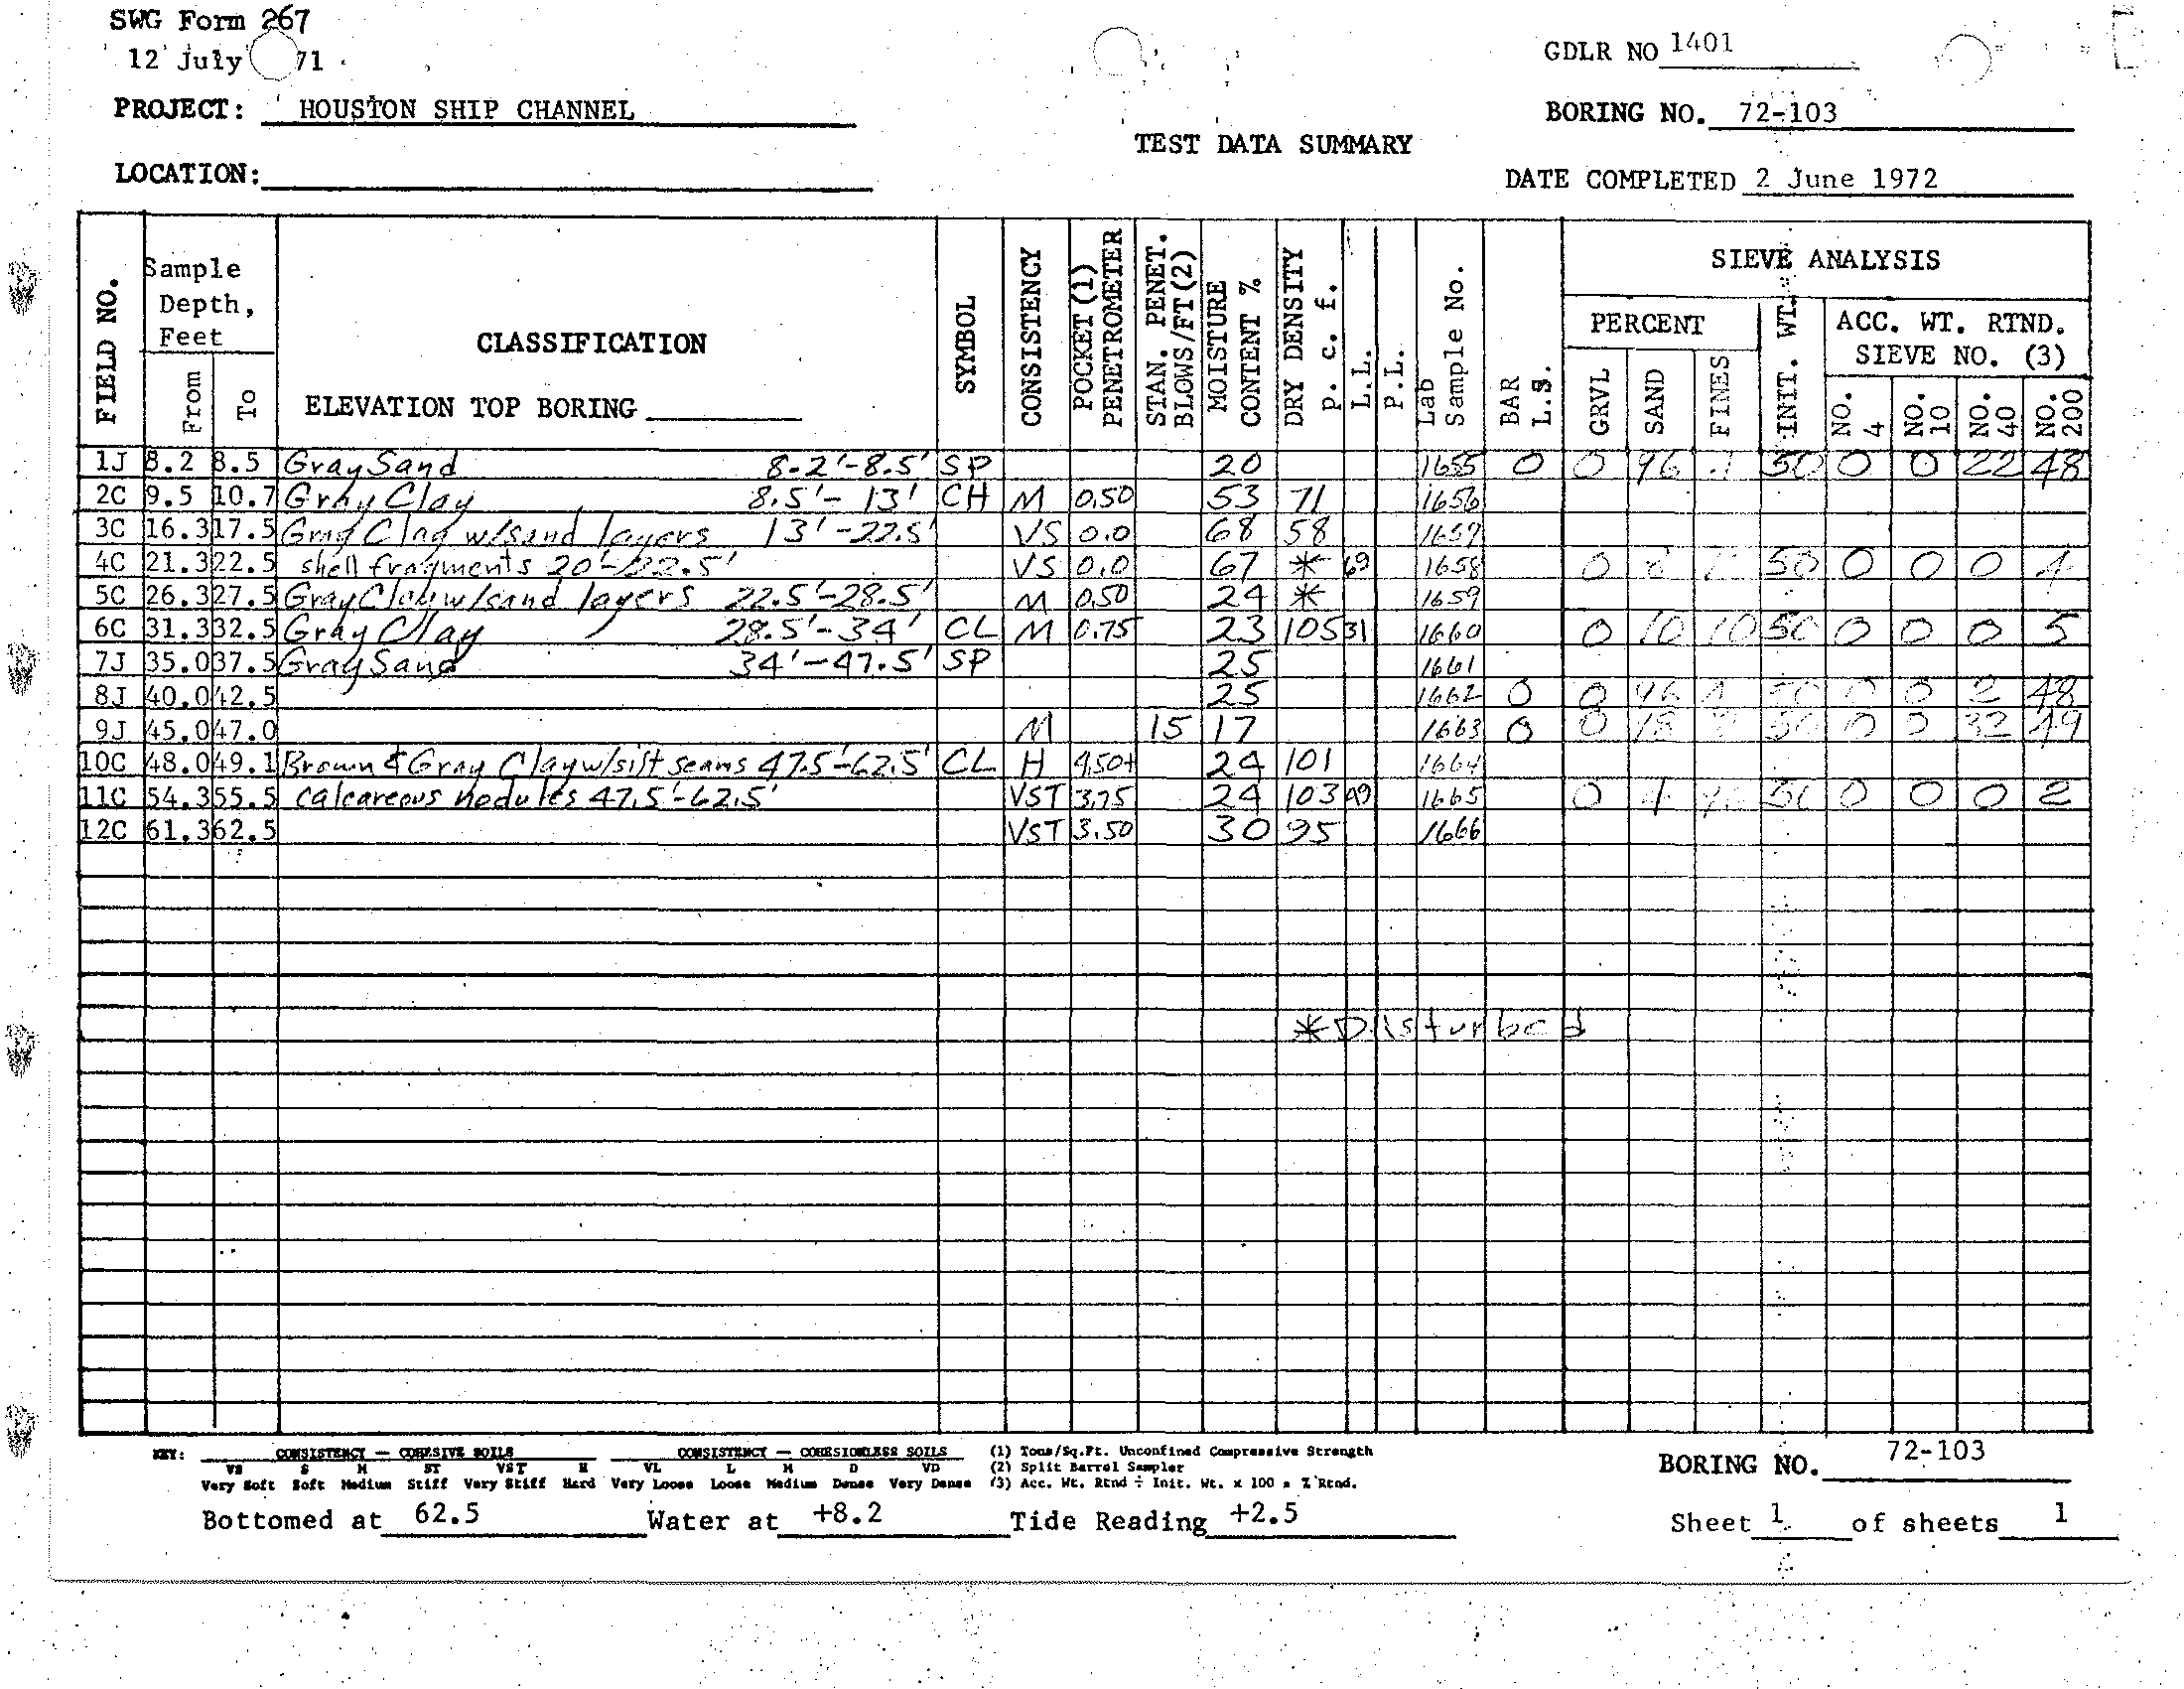 SWG Form 267
12 July 71
GDLR NO 1401
PROJECT: HOUSTON SHIP CHANNEL
BORING NO. 72-103
TEST DATA SUMMARY
LOCATION:
DATE COMPLETED 2 June 1972
FIELD NO.
Sample Depth, Feet
From
To
CLASSIFICATION
ELEVATION TOP BORING
SYMBOL
CONSISTENCY
POCKET (1) PENETROMETER
STAN. PENET. BLOWS/FT (2)
MOISTURE CONTENT %
DRY DENSITY p. c. f.
L.L.
P.L.
Lab Sample No.
BAR L.S.
SIEVE ANALYSIS
PERCENT
GRVL
SAND
FINES
INIT. WT.
ACC. WT. RTND. SIEVE NO. (3)
NO. 4
NO. 10
NO. 40
NO. 200
1J 8.2 8.5 Gray Sand 8-2'-8.5' SP 20 1655 0 0 96 50 0 0 22 48
2C 9.5 10.7 Gray Clay 8.5'- 13' CH M 0.50 53 71 1656
3C 16.3 17.5 Gray Clay w/sand layers 13'-22.5' VS 0.0 68 58 1657
4C 21.3 22.5 shell fragments 20'-22.5' VS 0.0 67 * 69 1658 0 50 0 0 0 1
5C 26.3 27.5 Gray Clay w/sand layers 22.5'-28.5' M 0.50 24 * 1659
6C 31.3 32.5 Gray Clay 28.5'-34' CL M 0.75 23 105 31 1660 0 10 50 0 0 0 5
7J 35.0 37.5 Gray Sand 34'-47.5' SP 25 1661
8J 40.0 42.5 25 1662 0 0 96 50 0 0 2 48
9J 45.0 47.0 M 15 17 1663 0 0 50 0 0 32 49
10C 48.0 49.1 Brown & Gray Clay w/silt seams 47.5'-62.5' CL H 4.50+ 24 101 1664
11C 54.3 55.5 calcareous nodules 47.5'-62.5' VST 3.75 24 103 49 1665 0 50 0 0 0 2
12C 61.3 62.5 VST 3.50 30 95 1666
* Disturbed
KEY: CONSISTENCY — COHESIVE SOILS CONSISTENCY — COHESIONLESS SOILS (1) Tons/Sq.Ft. Unconfined Compressive Strength
VS S M ST VST H VL L M D VD (2) Split Barrel Sampler
Very Soft Soft Medium Stiff Very Stiff Hard Very Loose Loose Medium Dense Very Dense (3) Acc. Wt. Rtnd ÷ Init. Wt. x 100 = % Rtnd.
BORING NO. 72-103
Bottomed at 62.5 Water at +8.2 Tide Reading +2.5
Sheet 1 of sheets 1